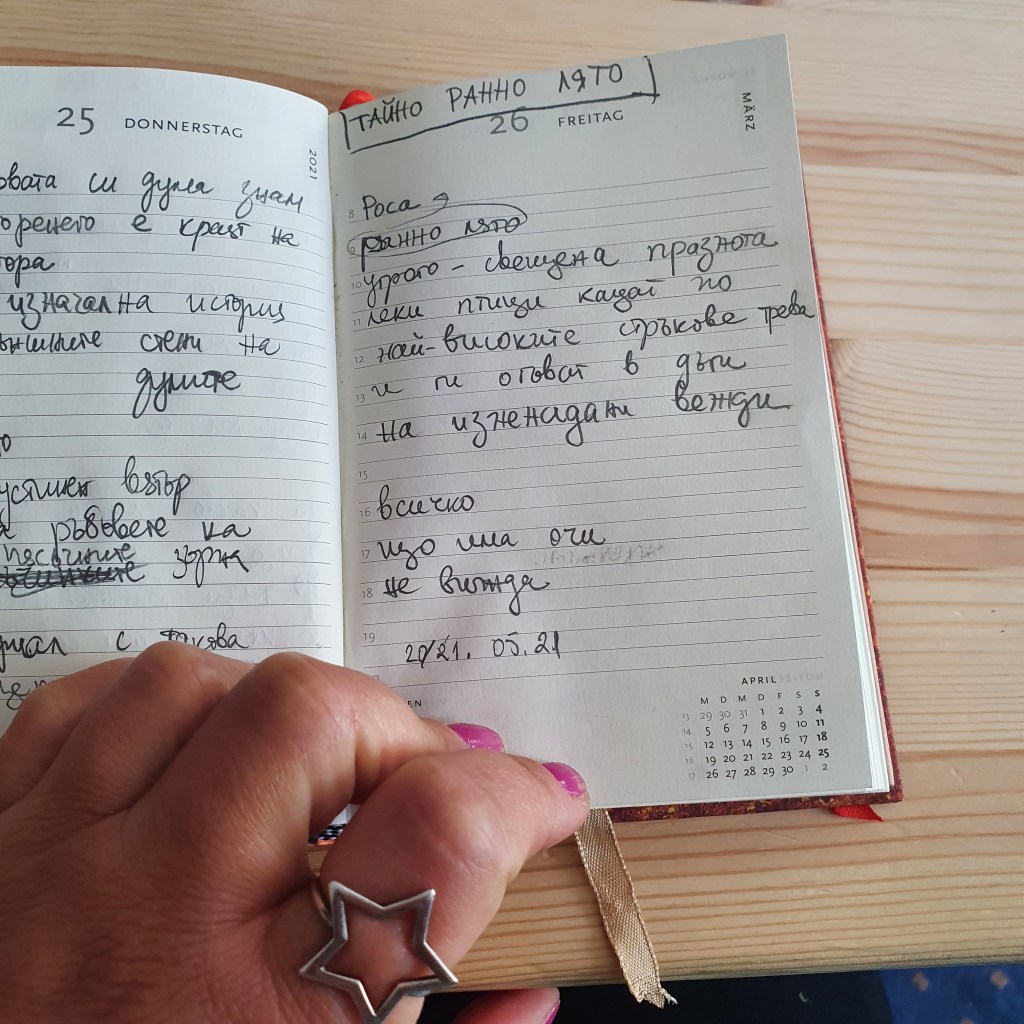 25 DONNERSTAG
2021
овата си дума знам
горенето е краят на
гора
изначална история
външните стени на
думите
о
устинен вятър
ръбовете на
пясъчните зърна
с такова
ТАЙНО РАННО ЛЯТО
26 FREITAG
MÄRZ
8 Роса
9 ранно лято
10 утрото - свещена празнота
11 леки птици кацат по
12 най-високите стръкове трева
13 и ги огъват в дъги
14 на изненадани вежди
15
16 всичко
17 що има очи
18 не вижда
19
20/21. 05. 21
EN
APRIL
M D M D F S S
13 29 30 31 1 2 3 4
14 5 6 7 8 9 10 11
15 12 13 14 15 16 17 18
16 19 20 21 22 23 24 25
17 26 27 28 29 30 1 2